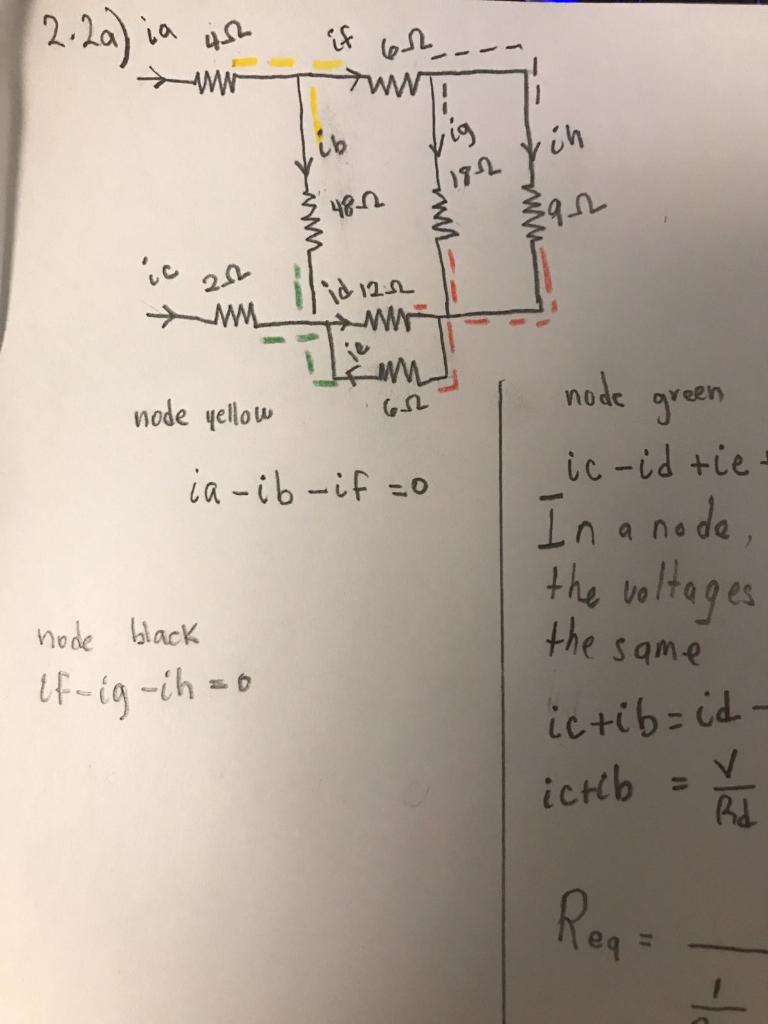 2.2a) ia 4Ω if 6Ω
ib ig ih
48Ω 18Ω 9Ω
ic 2Ω id 12Ω
ie
6Ω
node yellow
ia - ib - if = 0
node black
if - ig - ih = 0
node green
ic - id + ie +
In a node,
the voltages
the same
ic + ib = id -
ic + ib = V
Rd
Req =
1